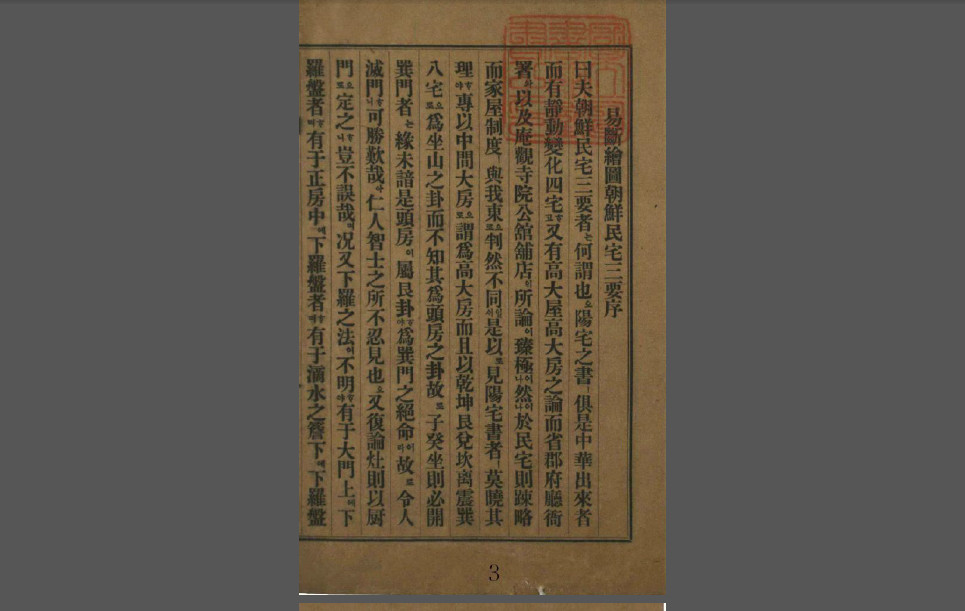 易斷繪圖朝鮮民宅三要序
曰夫朝鮮民宅三要者는何謂也오陽宅之書俱是中華出來者
而有靜動變化四宅하고又有高大屋高大房之論而省郡府廳衙
署와以及庵觀寺院公舘舖店이所論이臻極이나然이나於民宅則踈略
而家屋制度與我東으로判然不同일시是以로見陽宅書者莫曉其
理하야專以中間大房으로謂爲高大房而且以乾坤艮兌坎离震巽
八宅으로爲坐山之卦而不知其爲頭房之卦故로子癸坐則必開
巽門者는緣未諳是頭房이屬艮卦하야爲巽門之絕命이라故로令人
滅門하나니可勝歎哉아仁人智士之所不忍見也오又復論灶則以厨
門으로定之하니豈不誤哉며况又下羅之法이不明하야有于大門上에下
羅盤者하며有于正房中에下羅盤者하며有于滴水之簷下에下羅盤
3